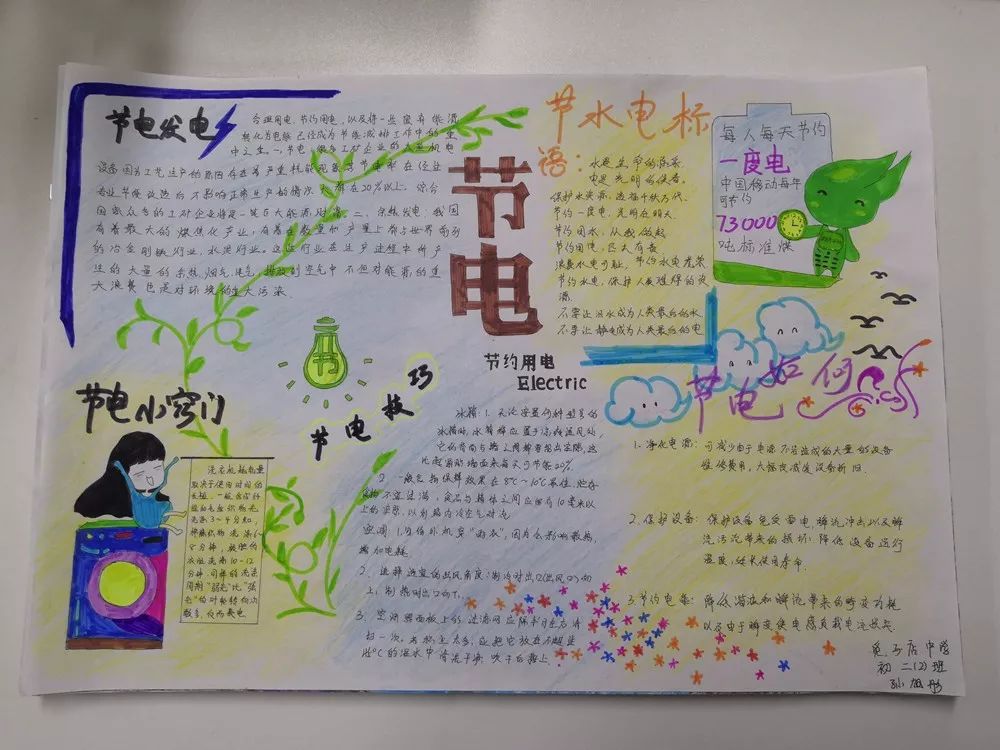 节电发电
合理用电、节约用电,以及将一些废弃能源
转化为电能已经成为节能减排工作中的重
中之重。一、节电:很多工矿企业的大型机电
设备因为工艺选产的原因存在着严重耗能现象与节电率在经过
专业节能改造后不影响正常生产的情况大都在20%以上。综合
国家众多的工矿企业将是一笔巨大能源财富。二、余热发电:我国
有着最大的煤焦化产业,有着在数量和产量上都与世界前列
的冶金钢铁行业,水泥行业。这些行业在生产过程中所产
生的大量的余热、烟气、尾气,排放到空气中不但对能源的重
大浪费也是对环境的重大污染.
节电
节约用电
Electric
节水电标
语:
水是生命的源泉
电是光明的使者.
保护水资源,造福千秋万代.
节约一度电,光明在明天.
节约用水,从我做起
节约用电,人人有责
浪费水电可耻,节约水电光荣
节约水电,保护人类短缺的资
源.
不要让泪水成为人类最后的水.
不要让静电成为人类最后的电
每人每天节约
一度电
中国移动每年
可节约
73000
吨标准煤
节电小窍门
洗衣机耗电量
取决于使用时间的
长短,一般合成纤
维和毛丝织物洗
洗涤3~4分钟,
棉麻织物洗涤6~
8分钟,极脏的
衣服洗涤10-12
分钟.同样的洗涤
周期"弱洗"比"强
洗"的叶轮转向次
数多,反而费电
节
节电技巧
冰箱:1.无论安置何种型号的
冰箱时,冰箱都应置于凉爽通风处,
它的背面与墙之间都要留出空隙,这
比紧贴墙面来每天可节能20%.
2.一般食物保鲜效果在8℃~10℃最佳,贮存
食物不宜过满,食品与箱体之间应留有10毫米以
上的空隙,以利箱内冷空气对流
空调:1.勿给外机穿"雨衣",因为会影响散热,
增加电耗
2、选择适宜的出风角度:制冷时出口(出风口)向
上,制热时出口向下.
3.空调器面板上的过滤网应隔半月左右清
扫一次,若积土太多,应把它放在不超过
45℃的温水中清洗干净.吹干后装上.
节电如何
1.净化电源:可减少由于电源不洁造成的大量的设备
维修费用,大幅度减缓设备折旧
2.保护设备:保护设备免受雷电瞬流冲击以及瞬
流污沉带来的损坏.降低设备运行
温度,延长使用寿命.
3.节约电能:降低谐波和瞬流带来的畸变功耗
以及由于畸变使电感负载电流损耗.
初二(2)班
孙旭彤